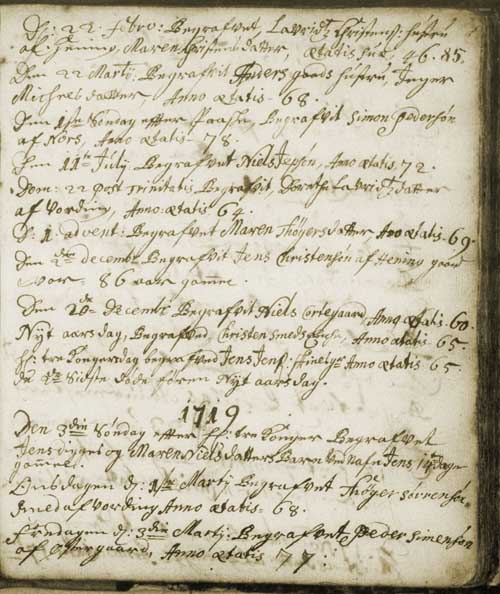 D: 22 Febro: Begrafvet, Lavridtz Christens: hustru
af Hening, Maren Christensdatter, ætatis suæ, 46.
Den 22 Martij Begrafvit Anders hustru, Inger
Michelsdatter, Anno ætatis 68.
Den 1ste Søndag effter Paaske, Begrafvit Simon Pedersøn
af Nors, Anno ætatis 78.
Den 11te Julij Begrafvet Niels Jepsøn, Ano ætatis 72.
Dom: 22 post trinitatis Begrafvit, Dorethe Lavridtzdatter
af Vording, Anno ætatis 64.
D: 1 advent: Begrafvet Maren Thøgersdatter, Ano ætatis 69.
Den decemb: Begrafvit Jens Christensøn af Hening
vor 86 aar gamel.
Den 20de Decemb: Begrafvit Niels Ortegaard, Anno ætatis 60.
Nyt aarsdag, Begrafved, Christen Anno ætatis 65.
H: tre Kongerdag begrafved Jens Anno ætatis 65
de Sidste døde føren Nyt aarsdag.
1719
Den 3die Søndag effter H: tre Konger Begrafvet
Jens og Maren Nielsdatters Barn ved Nafn Jens 14 dage
gammel.
Onsdagen d: 1ste Martij Begrafvet Thøger Sørrensøn
Smed af Vording Anno ætatis 68.
Fredagen d: 3die Martij: Begrafvet Peder Simensøn
af Østergaard, Anno ætatis 77.